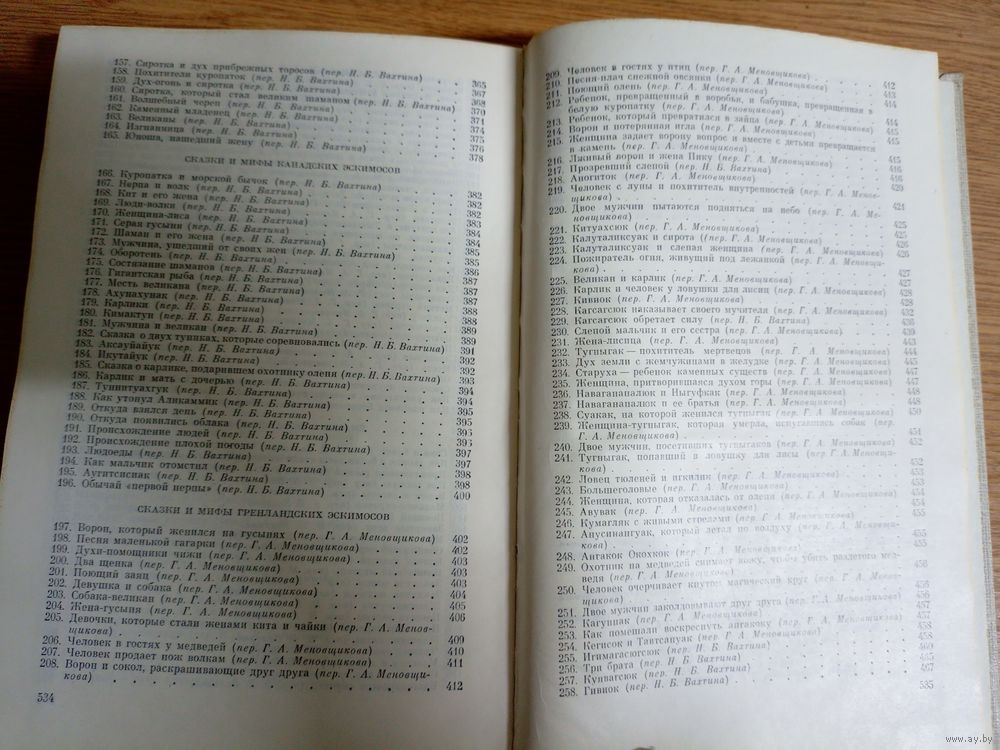 157. Сиротка и дух прибрежных торосов (пер. Н. Б. Вахтина) . 365
158. Похитители куропаток (пер. Н. Б. Вахтина) . 367
159. Дух-огонь и сиротка (пер. Н. Б. Вахтина) . 368
160. Сиротка, который стал великим шаманом (пер. Н. Б. Вахтина) 370
161. Волшебный череп (пер. Н. Б. Вахтина) . 371
162. Каменный младенец (пер. Н. Б. Вахтина) . 374
163. Великаны (пер. Н. Б. Вахтина) . 375
164. Изгнанница (пер. Н. Б. Вахтина) . 376
165. Юноша, нашедший жену (пер. Н. Б. Вахтина) . 378
СКАЗКИ И МИФЫ КАНАДСКИХ ЭСКИМОСОВ
166. Куропатка и морской бычок (пер. Н. Б. Вахтина) . 382
167. Нерпа и волк (пер. Н. Б. Вахтина) . 382
168. Кит и его жена (пер. Н. Б. Вахтина) . 382
169. Люди-волки (пер. Н. Б. Вахтина) . 383
170. Женщина-лиса (пер. Н. Б. Вахтина) . 383
171. Серая гусыня (пер. Н. Б. Вахтина) . 384
172. Шаман и его жена (пер. Н. Б. Вахтина) . 384
173. Мужчина, ушедший от своих жен (пер. Н. Б. Вахтина) . 385
174. Оборотень (пер. Н. Б. Вахтина) . 385
175. Состязание шаманов (пер. Н. Б. Вахтина) . 386
176. Гигантская рыба (пер. Н. Б. Вахтина) . 387
177. Месть великана (пер. Н. Б. Вахтина) . 387
178. Ахунахунак (пер. Н. Б. Вахтина) . 387
179. Карлики (пер. Н. Б. Вахтина) . 388
180. Кимактун (пер. Н. Б. Вахтина) . 388
181. Мужчина и великан (пер. Н. Б. Вахтина) . 389
182. Сказка о двух туниках, которые соревновались (пер. Н. Б. Вахтина) 389
183. Аксауйайук (пер. Н. Б. Вахтина) . 391
184. Икутайук (пер. Н. Б. Вахтина) . 392
185. Сказка о карлике, подарившем охотнику оленя (пер. Н. Б. Вахтина) 392
186. Карлик и мать с дочерью (пер. Н. Б. Вахтина) . 393
187. Туннитуахгук (пер. Н. Б. Вахтина) . 394
188. Как утонул Аликаммик (пер. Н. Б. Вахтина) . 394
189. Откуда взялся день (пер. Н. Б. Вахтина) . 395
190. Откуда появились облака (пер. Н. Б. Вахтина) . 395
191. Происхождение людей (пер. Н. Б. Вахтина) . 395
192. Происхождение плохой погоды (пер. Н. Б. Вахтина) . 396
193. Людоеды (пер. Н. Б. Вахтина) . 397
194. Как мальчик отомстил (пер. Н. Б. Вахтина) . 397
195. Аугитсисиак (пер. Н. Б. Вахтина) . 398
196. Обычай «первой нерпы» (пер. Н. Б. Вахтина) . 400
СКАЗКИ И МИФЫ ГРЕНЛАНДСКИХ ЭСКИМОСОВ
197. Ворон, который женился на гусынях (пер. Г. А. Меновщикова) . 402
198. Песня маленькой гагарки (пер. Г. А. Меновщикова) . 402
199. Духи-помощники чижи (пер. Г. А. Меновщикова) . 403
200. Два щенка (пер. Г. А. Меновщикова) . 403
201. Поющий заяц (пер. Г. А. Меновщикова) . 403
202. Девушка и собака (пер. Г. А. Меновщикова) . 404
203. Собака-великан (пер. Г. А. Меновщикова) . 405
204. Жена-гусыня (пер. Г. А. Меновщикова) . 406
205. Девочки, которые стали женами кита и чайки (пер. Г. А. Менов-
щикова) . 409
206. Человек в гостях у медведей (пер. Г. А. Меновщикова) . 410
207. Человек продает нож волкам (пер. Г. А. Меновщикова) . 411
208. Ворон и сокол, раскрашивающие друг друга (пер. Г. А. Меновщи-
кова) . 412
534
209. Человек в гостях у птиц (пер. Г. А. Меновщикова) . 412
210. Песня-плач снежной овсянки (пер. Г. А. Меновщикова) . 413
211. Поющий олень (пер. Г. А. Меновщикова) . 414
212. Ребенок, превращенный в воробья, и бабушка, превращенная в
белую куропатку (пер. Г. А. Меновщикова) . 414
213. Ребенок, который превратился в зайца (пер. Г. А. Меновщикова)
214. Ворон и потерянная игла (пер. Г. А. Меновщикова) .
215. Женщина задает ворону вопрос и вместе с детьми превращается
в камень (пер. Г. А. Меновщикова) . 415
216. Лживый ворон и жена Пику (пер. Г. А. Меновщикова) . 416
217. Прозревший слепой (пер. Н. Б. Вахтина) .
218. Аногиток (пер. Г. А. Меновщикова) . 420
219. Человек с луны и похититель внутренностей (пер. Г. А. Менов-
щикова) . 421
220. Двое мужчин пытаются подняться на небо (пер. Г. А. Ме-
новщикова) . 425
221. Китуахсюк (пер. Г. А. Меновщикова) . 425
222. Калуталиксуак и сирота (пер. Г. А. Меновщикова) . 426
223. Калуталиксуак и слепая женщина (пер. Г. А. Меновщикова)
224. Пожиратель огня, живущий под лежанкой (пер. Г. А. Меновщи-
кова) . 427
225. Великан и карлик (пер. Г. А. Меновщикова) . 427
226. Карлик и человек у ловушки для лисиц (пер. Г. А. Меновщикова) 428
227. Кивиок (пер. Г. А. Меновщикова) . 428
228. Кагсагсюк наказывает своего мучителя (пер. Г. А. Меновщикова) 432
229. Кагсагсюк обретает силу (пер. Н. Б. Вахтина) . 436
230. Слепой мальчик и его сестра (пер. Г. А. Меновщикова) . 439
231. Жена-лисица (пер. Г. А. Меновщикова) . 443
232. Тугныгак — похититель мертвецов (пер. Г. А. Меновщикова) . 444
233. Дух земли с жемчужинами в желудке (пер. Г. А. Меновщикова) 445
234. Старуха — ребенок каменных существ (пер. Г. А. Меновщикова) 447
235. Женщина, притворившаяся духом горы (пер. Г. А. Меновщикова) 447
236. Наваганапалюк и Ныгуфкак (пер. Г. А. Меновщикова) . 448
237. Наваганапалюк и ее братья (пер. Г. А. Меновщикова) . 448
238. Суакак, на которой женился тугныгак (пер. Г. А. Меновщикова) 450
239. Женщина-тугныгак, которая умерла, испугавшись собак (пер.
Г. А. Меновщикова) . 451
240. Двое мужчин, посетивших тугныгаков (пер. Г. А. Меновщикова) 452
241. Тугныгак, попавший в ловушку для лисы (пер. Г. А. Меновщи-
кова) . 452
242. Ловец тюленей и игкилик (пер. Г. А. Меновщикова) . 453
243. Большеголовые (пер. Г. А. Меновщикова) . 454
244. Женщина, которая отказалась от оленя (пер. Г. А. Меновщикова) 454
245. Авувак (пер. Г. А. Меновщикова) . 455
246. Кумагляк с живыми стрелами (пер. Г. А. Меновщикова)
247. Анусинангуак, который летал по воздуху (пер. Г. А. Меновщи-
кова) . 455
248. Ангакок Окохкюк (пер. Г. А. Меновщикова) . 455
249. Охотник на медведей снимает кожу, чтобы убить раздетого мед-
ведя (пер. Г. А. Меновщикова) . 456
250. Человек очерчивает кнутом магический круг (пер. Г. А. Менов-
щикова) . 456
251. Двое мужчин заколдовывают друг друга (пер. Г. А. Меновщикова) 456
252. Кагуннак (пер. Г. А. Меновщикова) . 457
253. Как помешали воскреснуть ангакоку (пер. Г. А. Меновщикова) 458
254. Кегисок и Тавтсангуак (пер. Г. А. Меновщикова) . 458
255. Игимагасюгсюк (пер. Г. А. Меновщикова) . 460
256. Три брата (пер. Г. А. Меновщикова) . 465
257. Кунвагсюк (пер. Н. Б. Вахтина) . 467
258. Гивиок (пер. Н. Б. Вахтина) .
535
www.ay.by